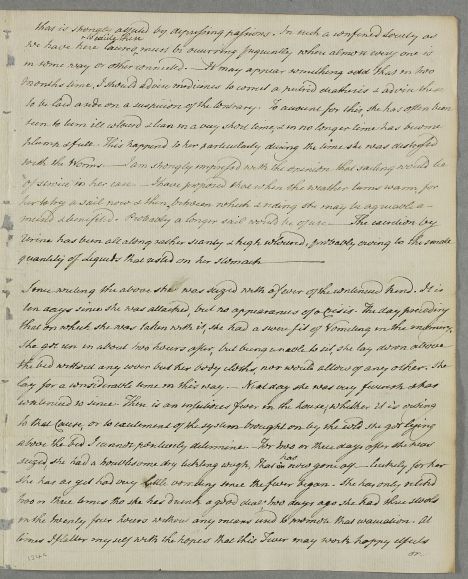 that is strongly affected by depressing passions. In such a confined Society as
we have here causes must be occurring frequently when almost every one is
in some way or other connected. It may appear something odd that in two
months time, I should advise medicines to correct a putrid diathesis & advise these
to be laid aside on a suspicion of the contrary. To account for this, she has often been
seen to turn ill coloured & lean in a very short time, & in no longer time has become
plump & full. This happened to her particularly during the time she was distressed
with the Worms. I am strongly impressed with the opinion that sailing would be
of service in her case. I have proposed that when the weather turns warm, for
her to try a sail now & then, between which & riding she may be agreeably a-
mused & benefited. Probably a longer sail would be of use. The excretion by
Urine has been all along rather scanty & high coloured, probably owing to the small
quantity of liquids that rested on her stomach
Since writing the above she was seized with a fever of the continued kind. It is
ten days since she was attacked, but no appearances of a crisis. The day preceding
that on which she was taken with it, she had a severe fit of Vomiting in the morning.
She got up in about two hours after, but being unable to sit, she lay down above
the bed without any cover but her body cloths, nor would allow of any other. She
lay for a considerable time in this way. Next day she was very feverish & has
continued so since. There is an infectious fever in the house, whether it is owing
to that cause, or to excitement of the system brought on by the cold she got lying
above the bed I cannot pertinently determine. For two or three days after she was
seized she had a troublesome dry tickling cough, that has now gone off. Luckily for her
she has as yet had very little vomiting since the fever began. She has only vomited
two or three times tho' she has drunk a good deal. Two days ago she had three stools
in the twenty four hours without any means used to promote that evacuation. At
times I flatter myself with the hopes that this Fever may work happy effects
on